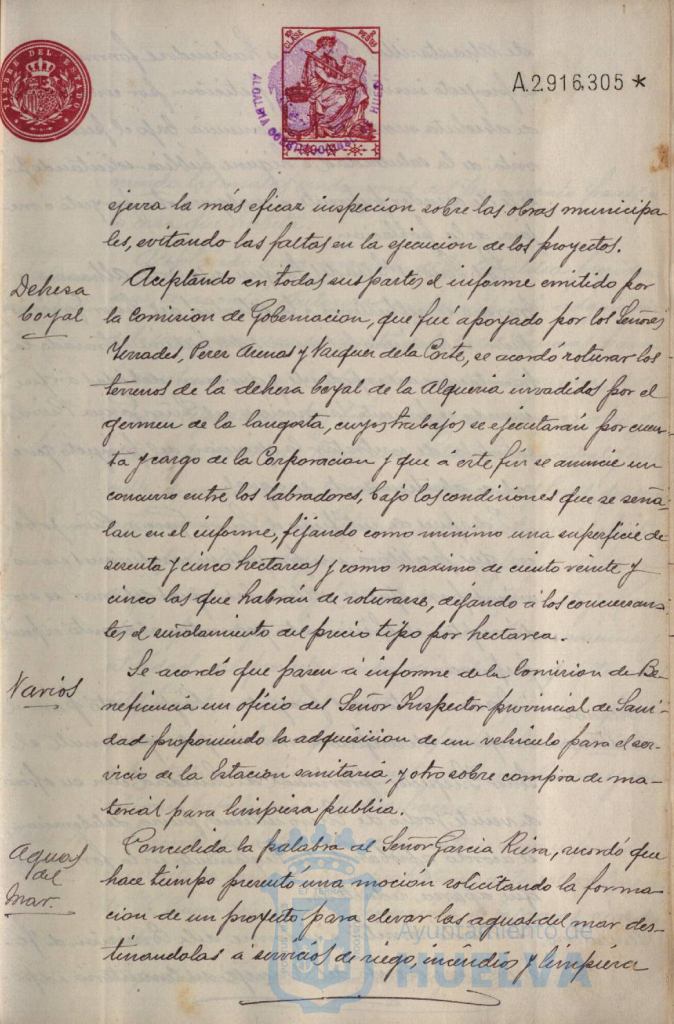 TIMBRE DEL ESTADO
10ª CLASE
PESETAS
ALCALDIA CONSTITUCIONAL HUELVA
A.2.916,305 *
ejerza la más eficaz inspeccion sobre las obras municipa-
les, evitando las faltas en la ejecucion de los proyectos.
Dehesa
boyal
Aceptando en todas sus partes el informe emitido por
la Comision de Gobernacion, que fué apoyado por los Señores
Terrades, Perez Arenas y Vazquez de la Corte, se acordó roturar los
terrenos de la dehesa boyal de la Alqueria invadidos por el
germen de la langosta, cuyos trabajos se ejecutarán por cuen-
ta y cargo de la Corporacion y que á este fin se anuncie un
concurso entre los labradores, bajo las condiciones que se seña-
lan en el informe, fijando como minimo una superficie de
sesenta y cinco hectareas y como maximo de ciento veinte y
cinco las que habrán de roturarse, dejando á los concursan-
tes el señalamiento del precio tipo por hectarea.
Varios
Se acordó que pasen á informe de la Comision de Be-
neficencia un oficio del Señor Inspector provincial de Sani-
dad proponiendo la adquisicion de un vehiculo para el ser-
vicio de la Estacion sanitaria, y otro sobre compra de ma-
terial para limpieza publica.
Aguas
del
Mar.
Concedida la palabra al Señor Garcia Riera, recordó que
hace tiempo presentó una moción solicitando la forma-
cion de un proyecto para elevar las aguas del mar des-
tinandolas á servicios de riego, incendios y limpieza
Ayuntamiento de
HUELVA